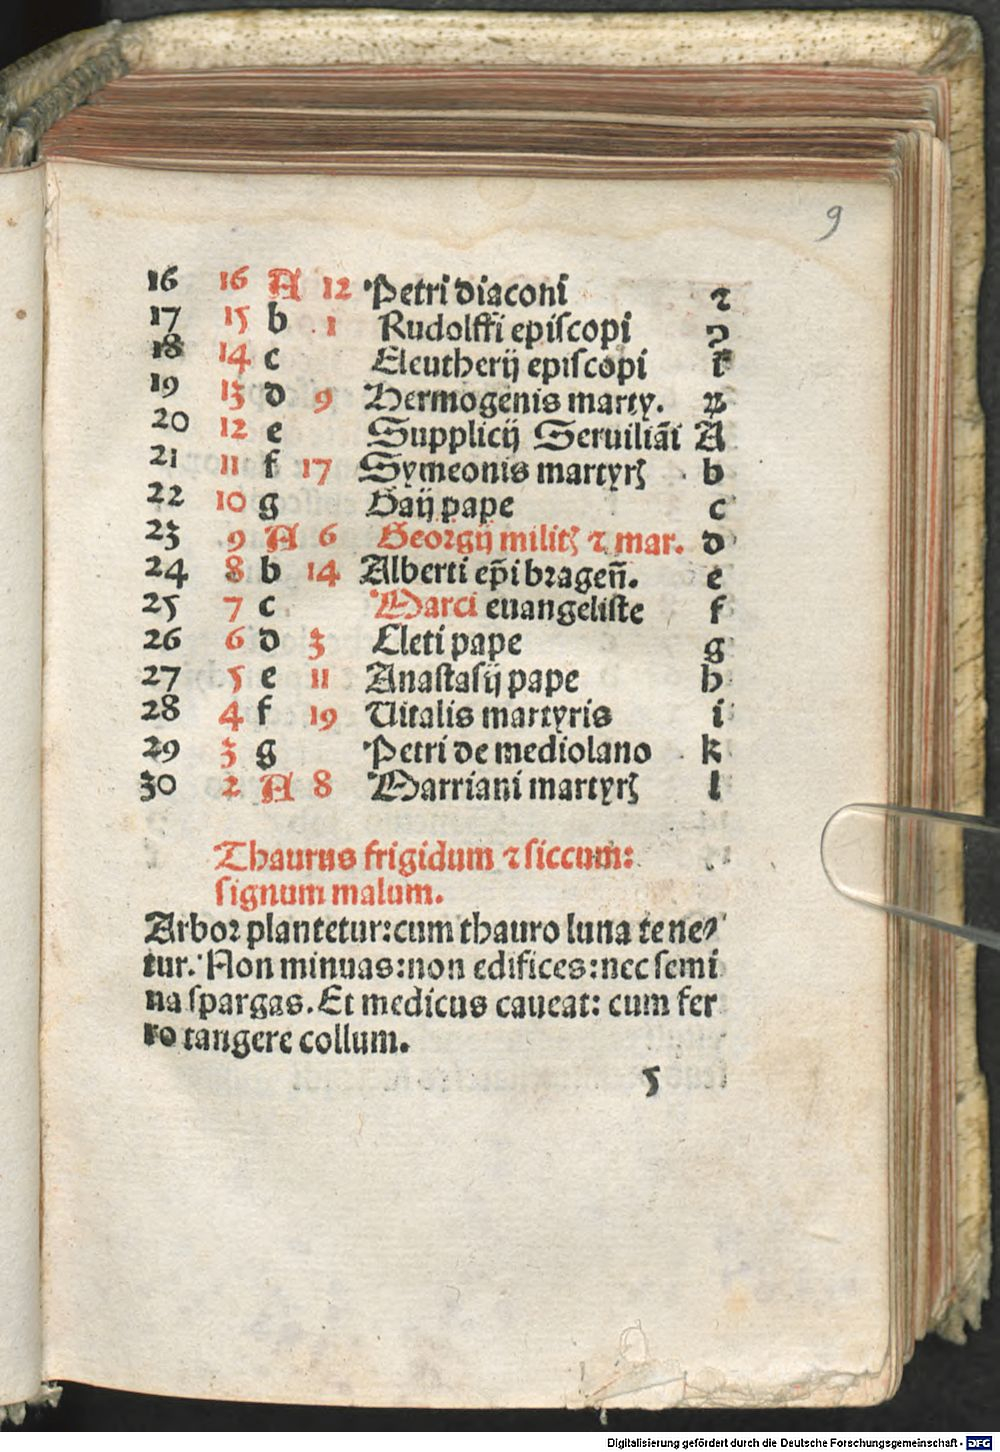 9
16 16 A 12 Petri diaconi ⁊
17 15 b 1 Rudolffi epiſcopi ꝯ
18 14 c Eleutherij epiſcopi
19 13 d 9 Hermogenis marty.
20 12 e Supplicij Seruiliãi A
21 11 f 17 Symeonis martyrꝭ b
22 10 g Gaij pape c
23 9 A 6 Georgij militꝭ ⁊ mar. d
24 8 b 14 Alberti ep̃i bꝛageñ. e
25 7 c Marci euangeliſte f
26 6 d 3 Cleti pape g
27 5 e 11 Anaſtaſij pape h
28 4 f 19 Uitalis martyris i
29 3 g Petri de mediolano k
30 2 A 8 Marriani martyrꝭ l
Thaurus frigidum ⁊ ſiccum:
ſignum malum.
Arboꝛ plantetur: cum thauro luna tene⸗
tur. Non minuas: non edifices: nec ſemi
na ſpargas. Et medicus caueat: cum fer
ro tangere collum.
5
Digitalisierung gefördert durch die Deutsche Forschungsgemeinschaft - DFG